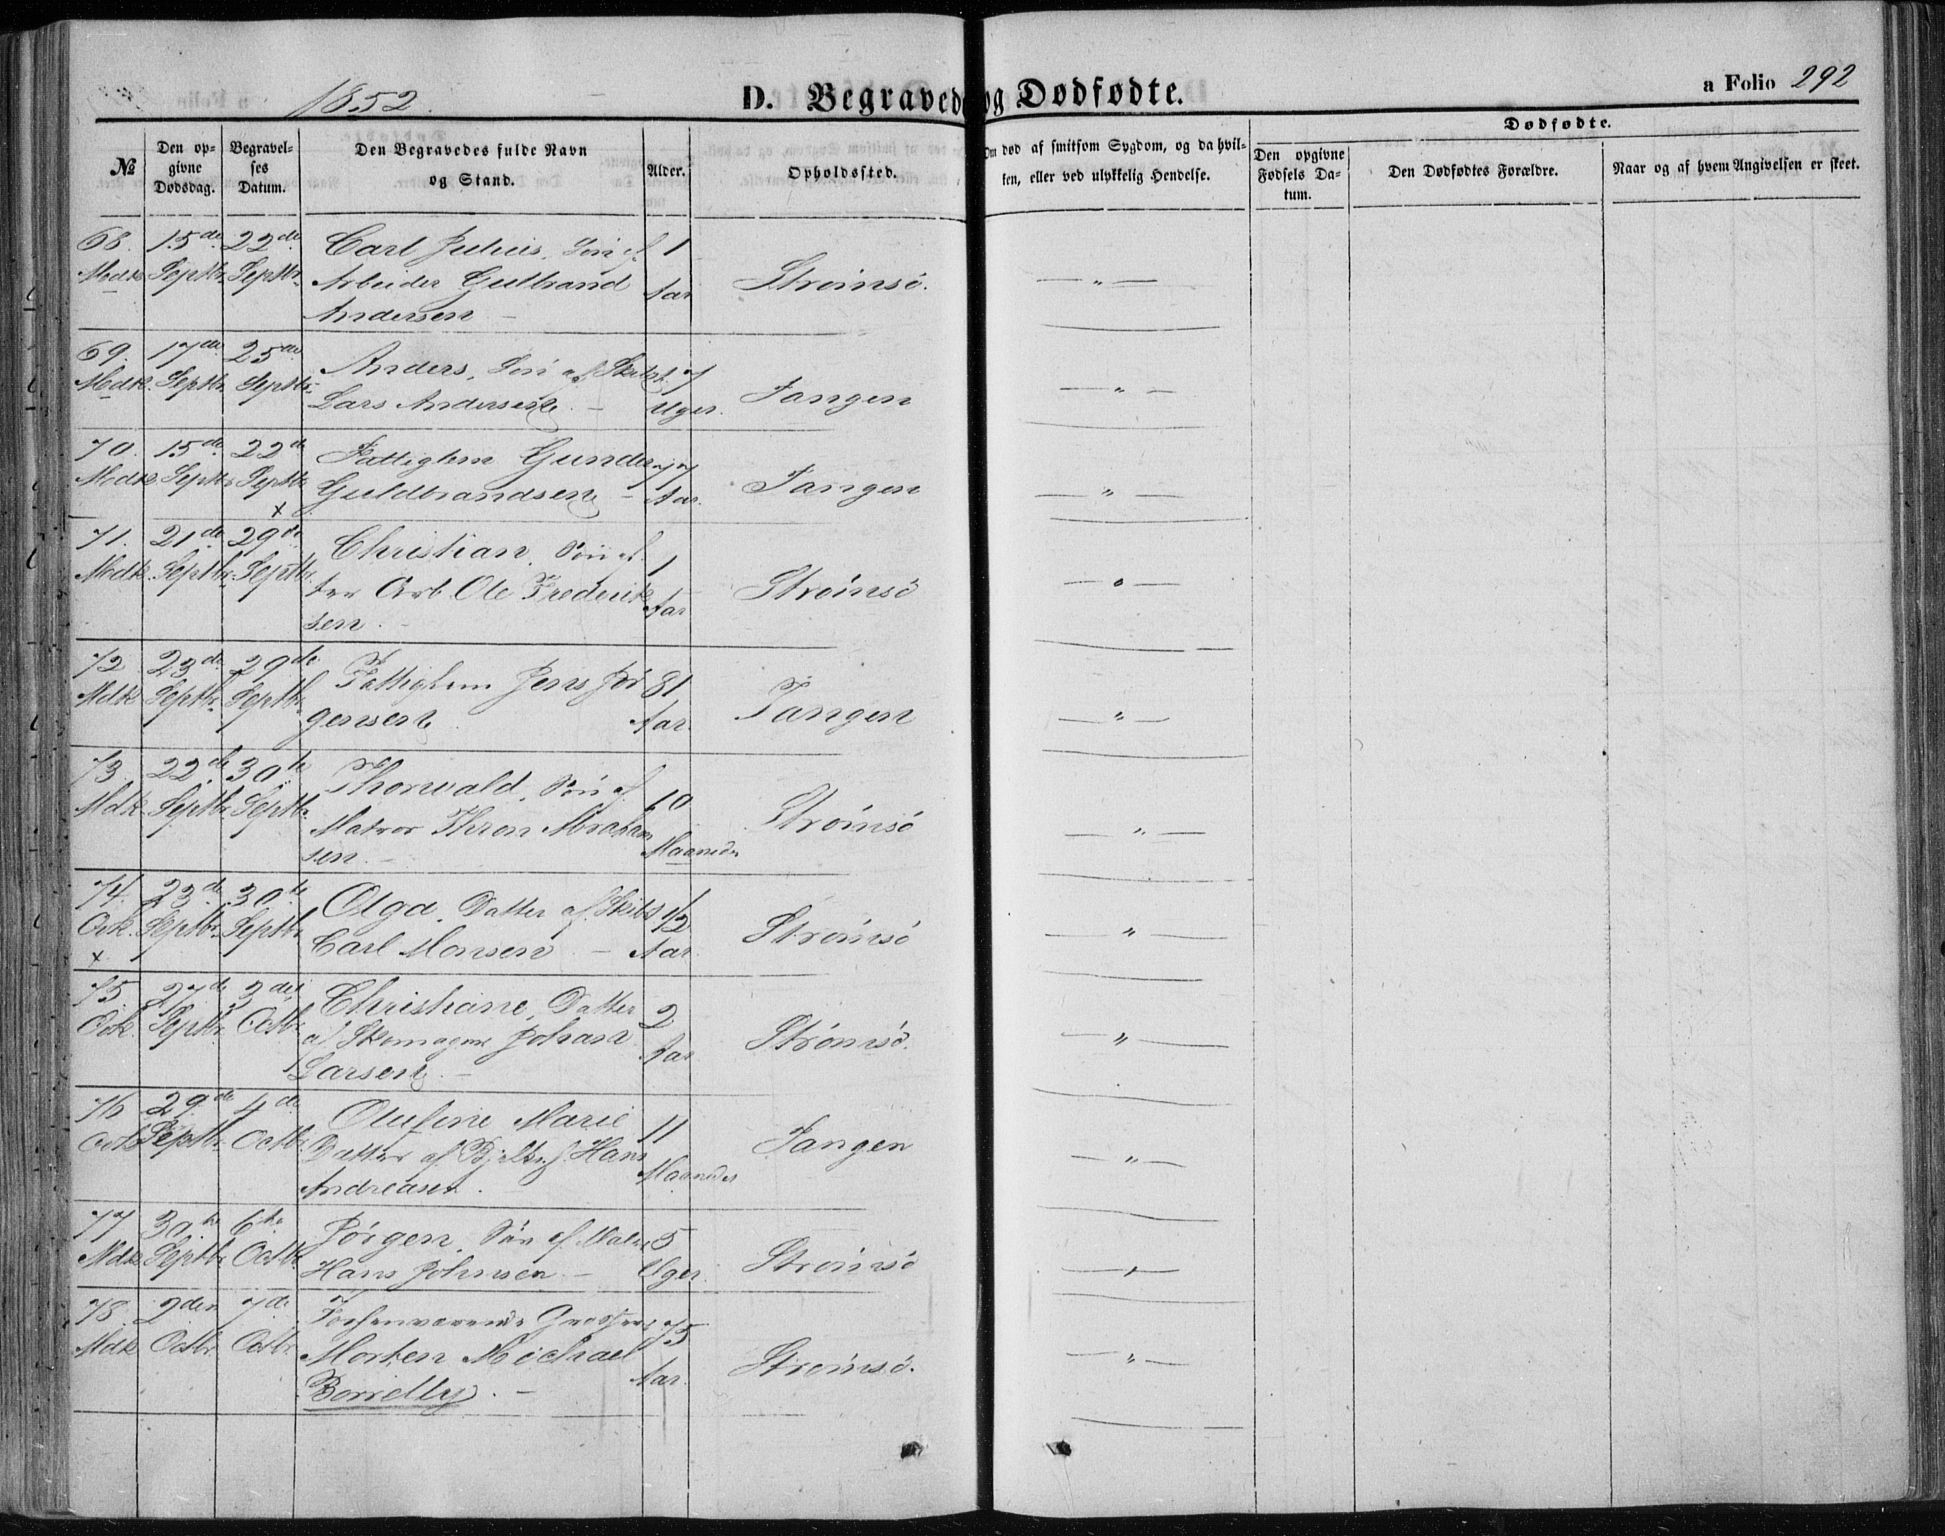 1852.
D. Begravede og Dødfødte.
a Folio 292
№
Den opgivne Dødsdag.
Begravelses Datum.
Den Begravedes fulde Navn og Stand.
Alder.
Opholdssted.
Om død af smitsom Sygdom, og da hvilken, eller ved ulykkelig Hendelse.
Dødfødte.
Den opgivne Fødsels Datum.
Den Dødfødtes Forældre.
Naar og af hvem Angivelsen er skeet.
68. 15de 22de Carl Julius, Søn af 1
Mdk. Septbr. Septbr. Arbeider Gulbrand Aar Strømsø. — " —
Andersen —
69. 17de 25de Anders, Søn af Skibst. 7
Mdk. Septbr. Septbr. Lars Andersen. — Uger. Tangen — " —
70. 15de 22de Fattiglem Gunder 77
Mdk. Septbr. Septbr. Guldbrandsen — Aar. Tangen — " —
x
71. 21de 29de Christian, Søn af 1
Mdk. Septbr. Septbr. Arb Ole Frederik Aar Strømsø — " —
sen. —
72 23de 29de Fattiglem Jens Jør 81
Mdk. Septbr. Septbr. gensen Aar. Tangen — " —
73. 22de 30te Thorvald, Søn af 10
Mdk. Septbr. Septbr. Matros Thron Abraham Maaneder Strømsø — " —
sen. —
74. 23de 30te Olga, Datter af Skibs 1/2
Qvk. Septbr. Septbr. Carl Monsen — Aar. Strømsø — " —
x
75. 27de 3die Christiane, Datter 2
Qvk. Septbr. Octbr. af Skomager Johan Aar Strømsø. — " —
Larsen. —
76 29de 4de Olufine Marie 11
Qvk Septbr. Octbr. Datter af Hans Maaneder Tangen — " —
Andreasen. —
77 30te 6te Jørgen, Søn af Matr. 5
Mdk. Septbr. Octbr. Hans Johnsen — Uger. Strømsø — " —
78. 2den 7de Forhenværende 75
Mdk Octbr. Octbr. Morten Michael Aar. Strømsø. — " —
Borrelly. —